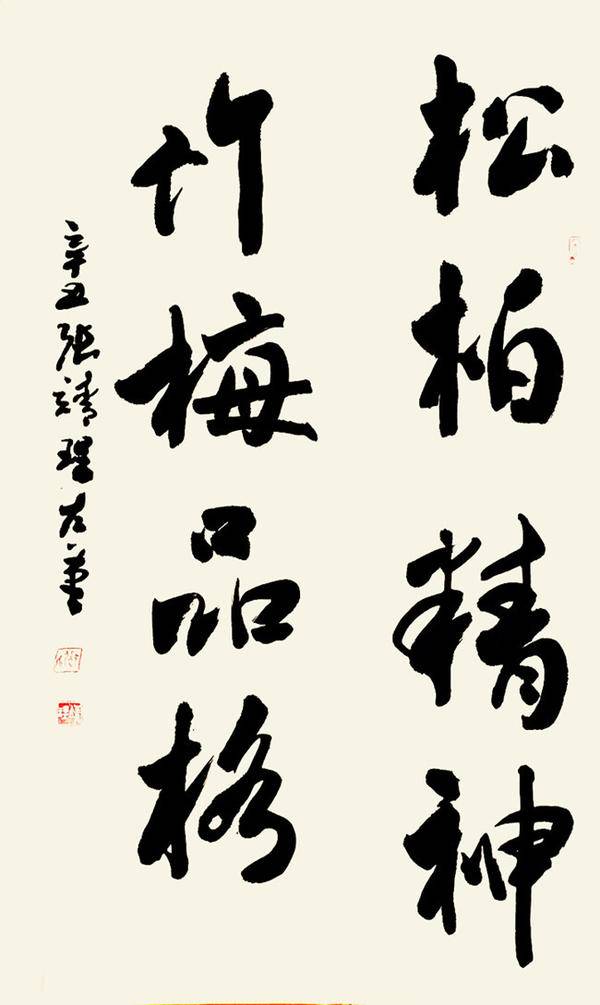 松柏精神
竹梅品格
辛丑张靖理左笔